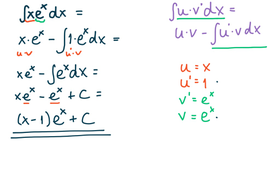 ∫xeˣdx =
x·eˣ - ∫1·eˣdx =
u·v u'·v
xeˣ - ∫eˣdx =
xeˣ - eˣ + C =
(x-1)eˣ + C
∫u·v'dx =
u·v - ∫u'·vdx
u = x
u' = 1
v' = eˣ
v = eˣ